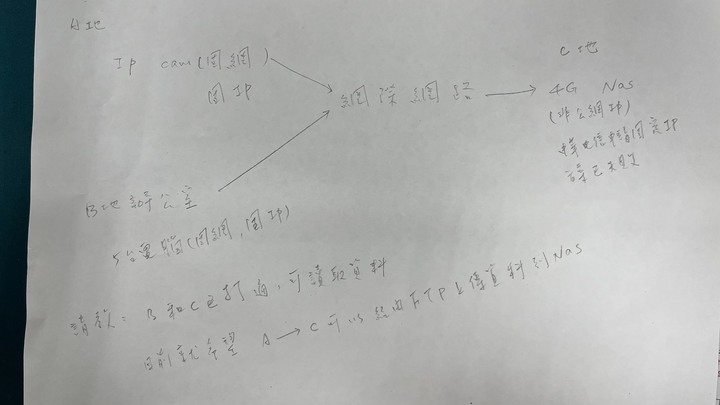 A地
Ip cam(固網)
固IP
C地
4G Nas
(非公網IP)
中華電信申請固定IP
B地辦公室
5台電腦(固網,固IP)
請教: B和C已打通,可讀取資料
目前就希望 A→C可以經由FTP上傳資料到Nas